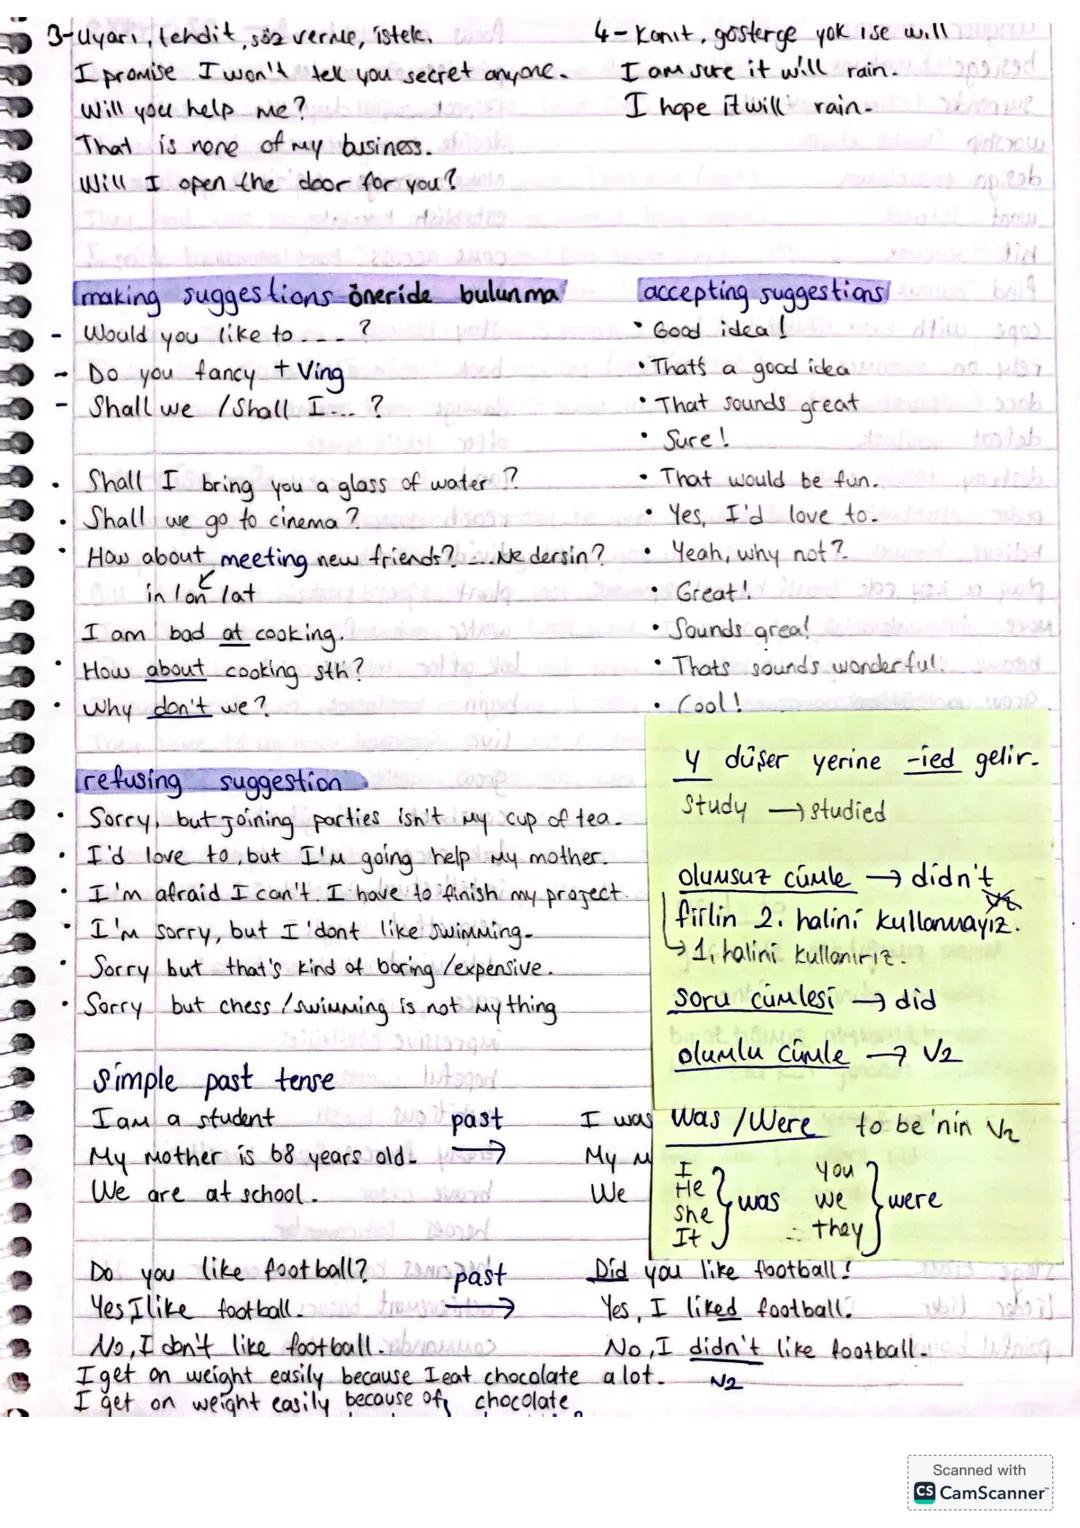 3-Uyarı, tehdit, söz verme, istek.
I promise I won't tell you secret anyone.
Will you help me?
That is none of my business.
Will I open the door for you?
4- Kanıt, gösterge yok ise will
I am sure it will rain.
I hope it will rain.
making suggestions öneride bulunma
- Would you like to .... ?
- Do you fancy + Ving
- Shall we / Shall I... ?
• Shall I bring you a glass of water?
• Shall we go to cinema?
• How about meeting new friends? ...Ne dersin?
in / on / at
I am bad at cooking.
• How about cooking sth?
• Why don't we?
accepting suggestions
• Good idea!
• That's a good idea
• That sounds great
• Sure!
• That would be fun.
• Yes, I'd love to.
• Yeah, why not?
• Great!
• Sounds grea!
• Thats sounds wonderful.
• Cool!
refusing suggestion
• Sorry, but joining parties isn't my cup of tea.
• I'd love to, but I'm going help my mother.
• I'm afraid I can't. I have to finish my project.
• I'm sorry, but I 'dont like swimming.
• Sorry but that's kind of boring /expensive.
• Sorry but chess / swimming is not my thing
y düşer yerine -ied gelir.
Study → studied
olumsuz cümle → didn't
fiilin 2. halini kullanmayız.
→ 1. halini kullanırız.
soru cümlesi → did
olumlu cümle → V2
Was / Were to be'nin V2
I
He
She
It
was
you
we
they
were
Simple past tense
I am a student
past
I was
My mother is 68 years old.
→
My m
We are at school.
We
Do you like football?
past
Did you like football?
Yes I like football.
→
Yes, I liked football.
No, I don't like football.
No, I didn't like football.
I get on weight easily because I eat chocolate a lot.
V2
I get on weight easily because of chocolate
Scanned with
CS CamScanner